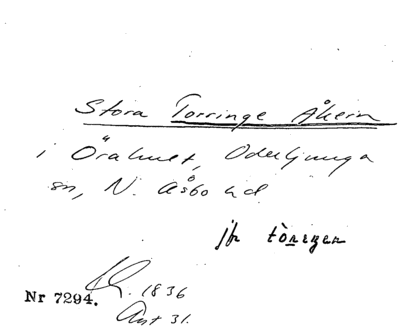 Stora Torringe Åkern
i Örahult, Oderljunga
sn, N. Åsbo hd
jfr tòrriŋen
Nr 7294. 1836
Art 31.